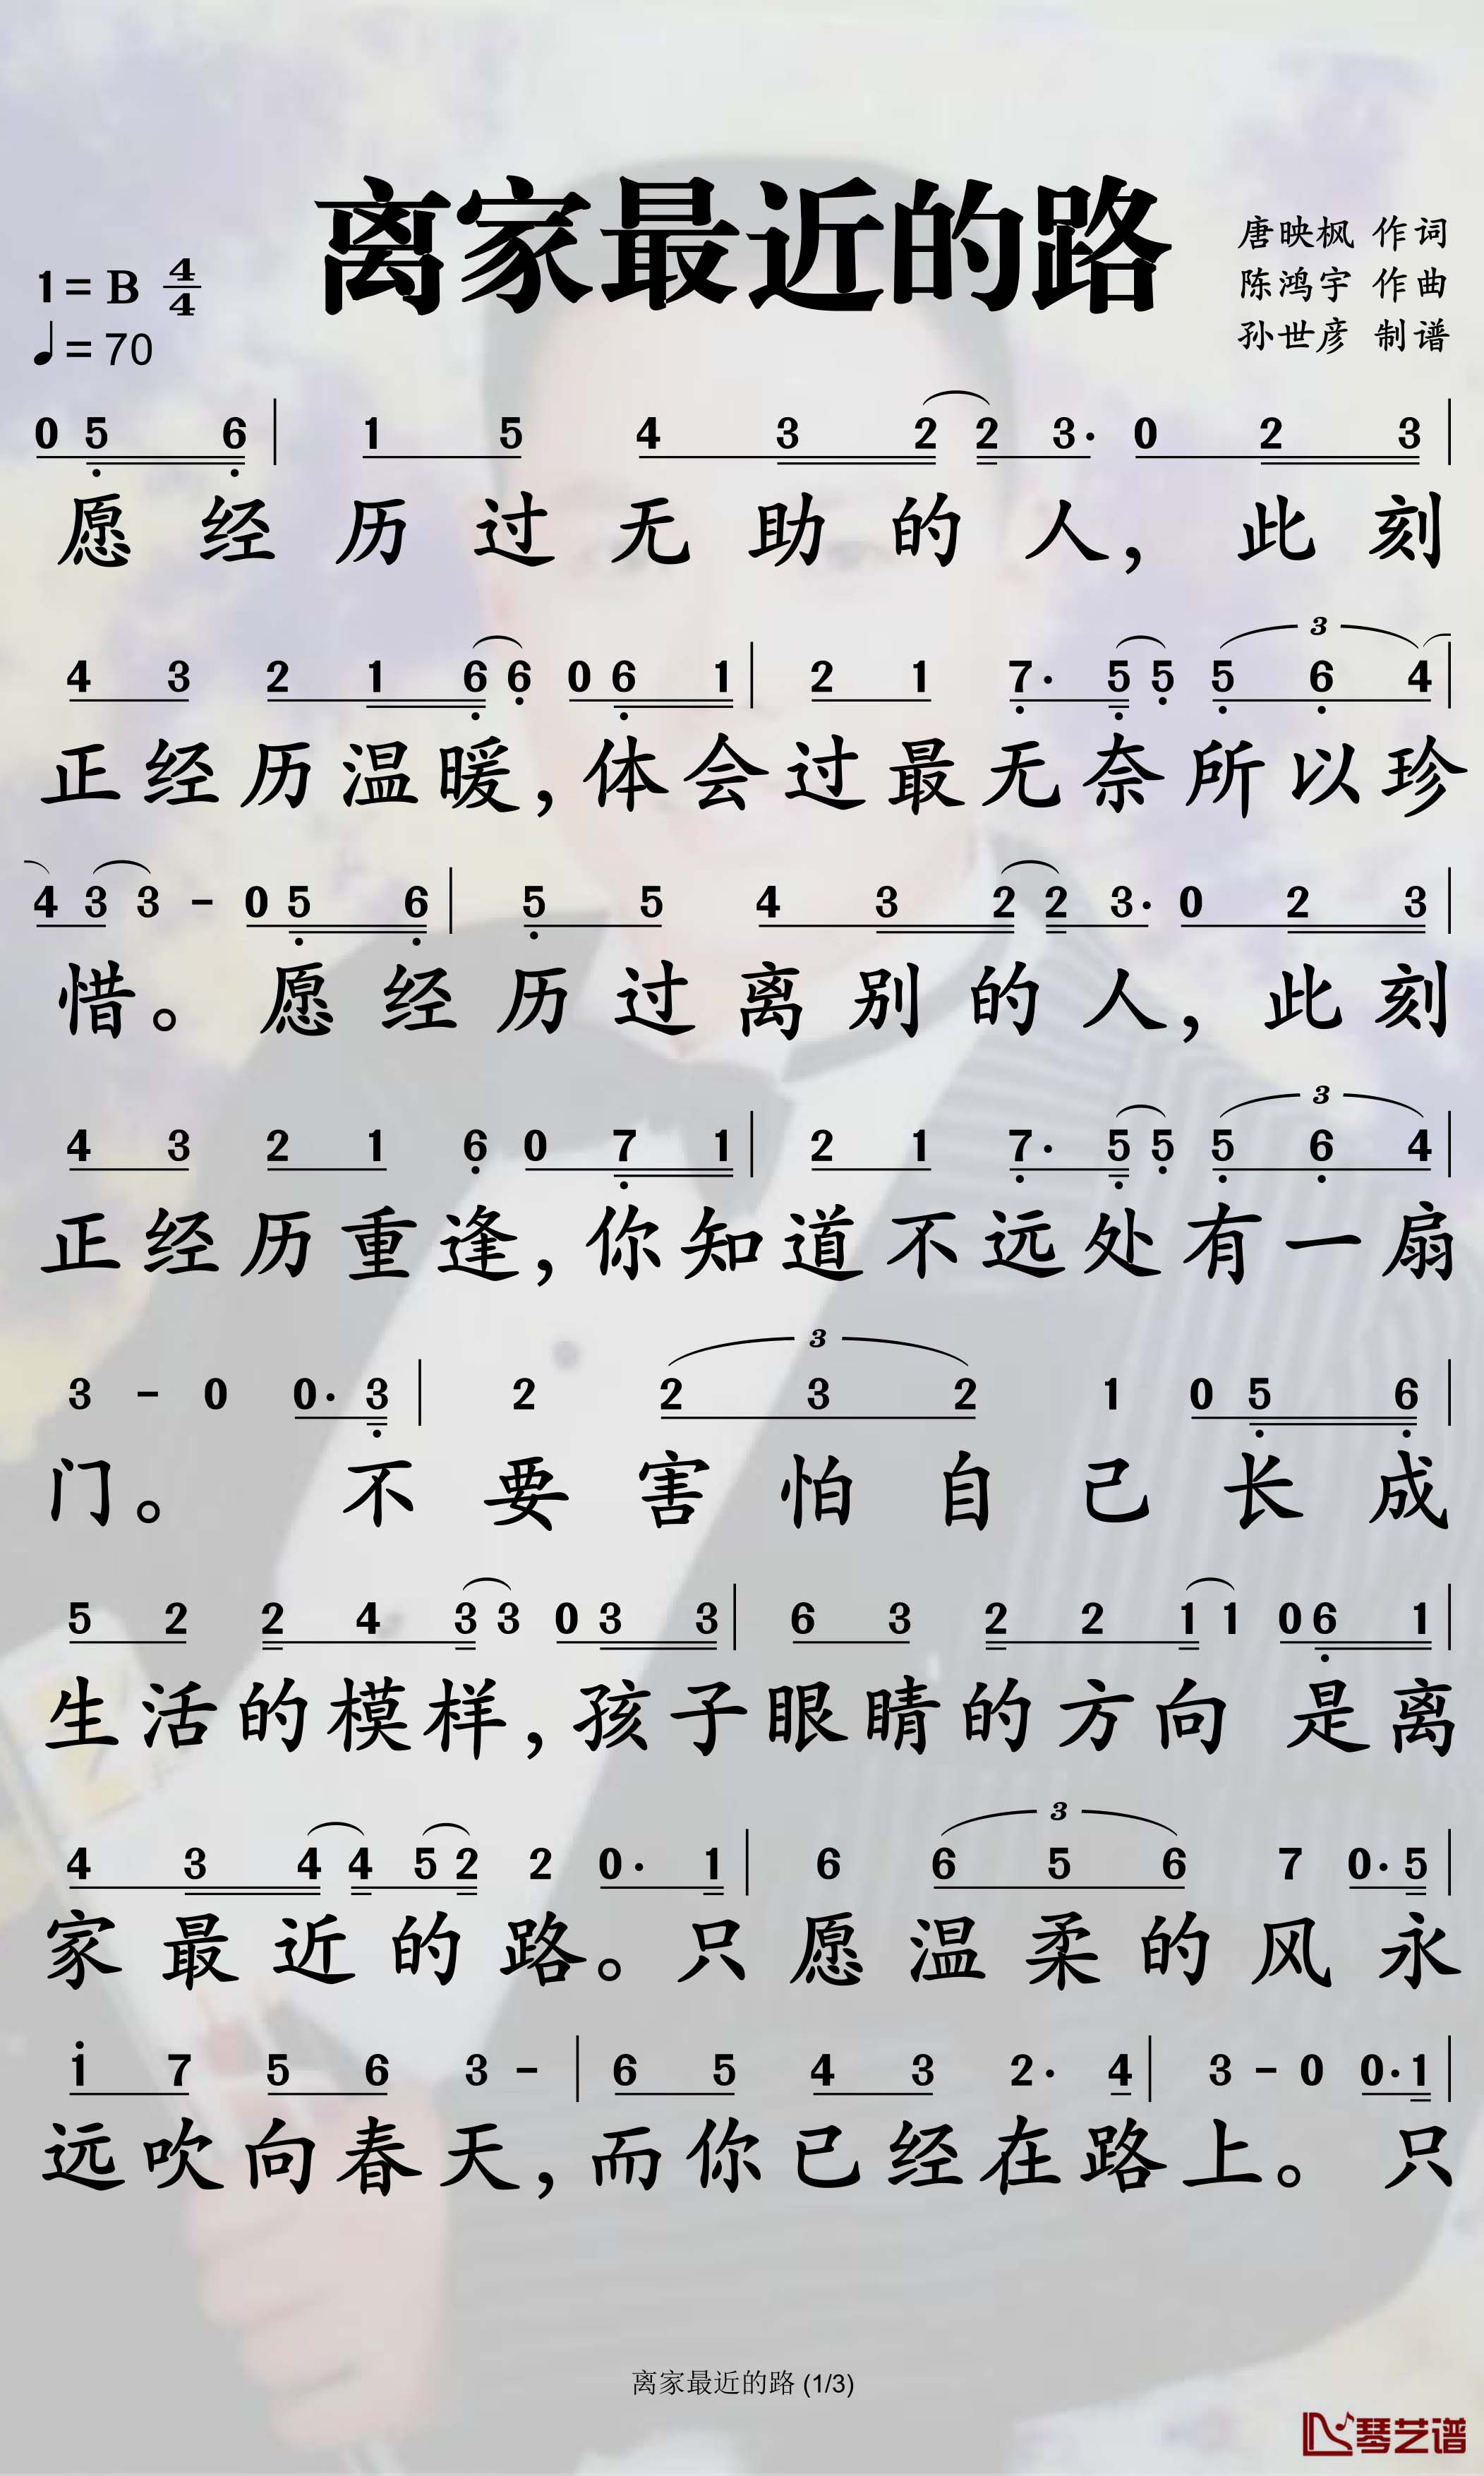 离家最近的路
唐映枫 作词
陈鸿宇 作曲
孙世彦 制谱
1= B 4/4
♩= 70
0 5 6 | 1 5 4 3 2 2 3· 0 2 3 |
愿经历过无助的人，此刻
3
4 3 2 1 6 6 0 6 1 | 2 1 7· 5 5 5 6 4 |
正经历温暖，体会过最无奈所以珍
4 3 3 - 0 5 6 | 5 5 4 3 2 2 3· 0 2 3 |
惜。愿经历过离别的人，此刻
3
4 3 2 1 6 0 7 1 | 2 1 7· 5 5 5 6 4 |
正经历重逢，你知道不远处有一扇
3
3 - 0 0· 3 | 2 2 3 2 1 0 5 6 |
门。不要害怕自己长成
5 2 2 4 3 3 0 3 3 | 6 3 2 2 1 1 0 6 1 |
生活的模样，孩子眼睛的方向 是离
3
4 3 4 4 5 2 2 0· 1 | 6 6 5 6 7 0· 5 |
家最近的路。只愿温柔的风永
i 7 5 6 3 - | 6 5 4 3 2· 4 | 3 - 0 0· 1 |
远吹向春天，而你已经在路上。只
离家最近的路 (1/3)
琴艺谱